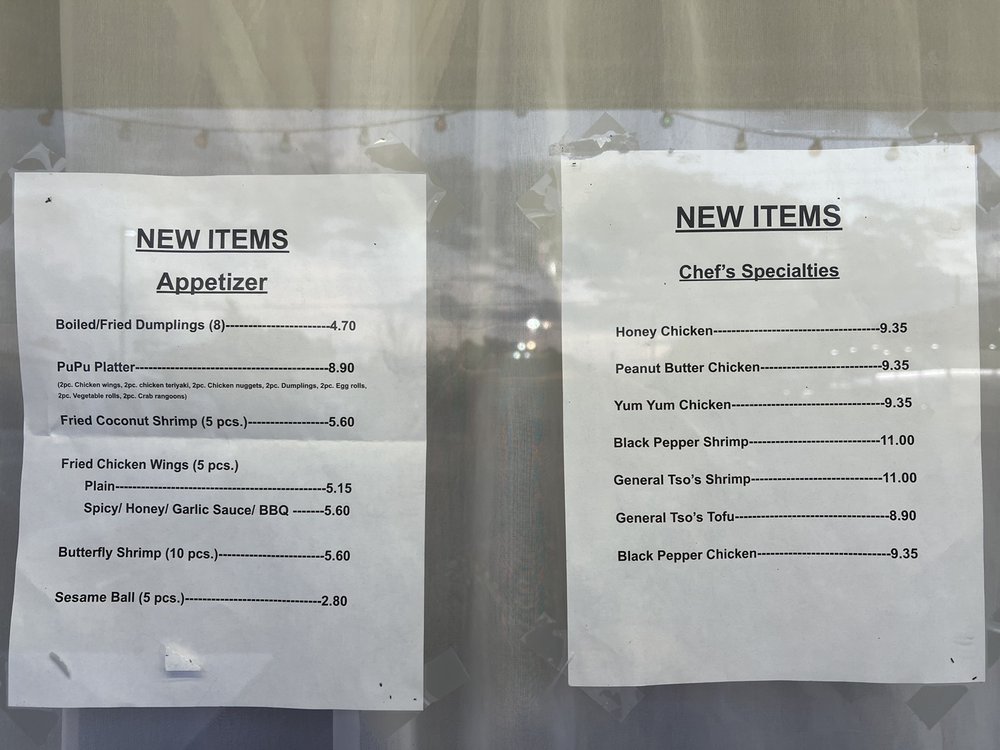 NEW ITEMS
Appetizer
Boiled/Fried Dumplings (8)-----------------------4.70
PuPu Platter-------------------------------------------8.90
(2pc. Chicken wings, 2pc. chicken teriyaki, 2pc. Chicken nuggets, 2pc. Dumplings, 2pc. Egg rolls,
2pc. Vegetable rolls, 2pc. Crab rangoons)
Fried Coconut Shrimp (5 pcs.)------------------5.60
Fried Chicken Wings (5 pcs.)
Plain-----------------------------------------------5.15
Spicy/ Honey/ Garlic Sauce/ BBQ -------5.60
Butterfly Shrimp (10 pcs.)-----------------------5.60
Sesame Ball (5 pcs.)------------------------------2.80
NEW ITEMS
Chef's Specialties
Honey Chicken-------------------------------------9.35
Peanut Butter Chicken---------------------------9.35
Yum Yum Chicken----------------------------------9.35
Black Pepper Shrimp-----------------------------11.00
General Tso's Shrimp-----------------------------11.00
General Tso's Tofu----------------------------------8.90
Black Pepper Chicken-----------------------------9.35